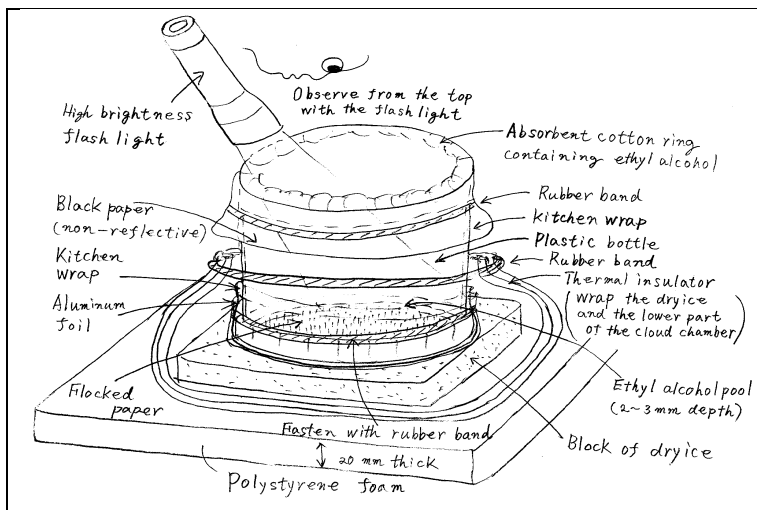 High brightness
flash light
Observe from the top
with the flash light
Absorbent cotton ring
containing ethyl alcohol
Rubber band
kitchen wrap
Plastic bottle
Rubber band
Thermal insulator
(wrap the dryice
and the lower part
of the cloud chamber)
Black paper
(non-reflective)
Kitchen
wrap
Aluminum
foil
Flocked
paper
Fasten with rubber band
Ethyl alcohol pool
(2~3mm depth)
Block of dryice
20 mm thick
Polystyrene foam